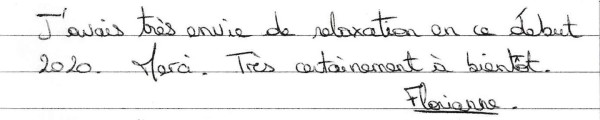 J'avais très envie de relaxation en ce début
2020. Merci. Très certainement à bientôt.
Florianne.